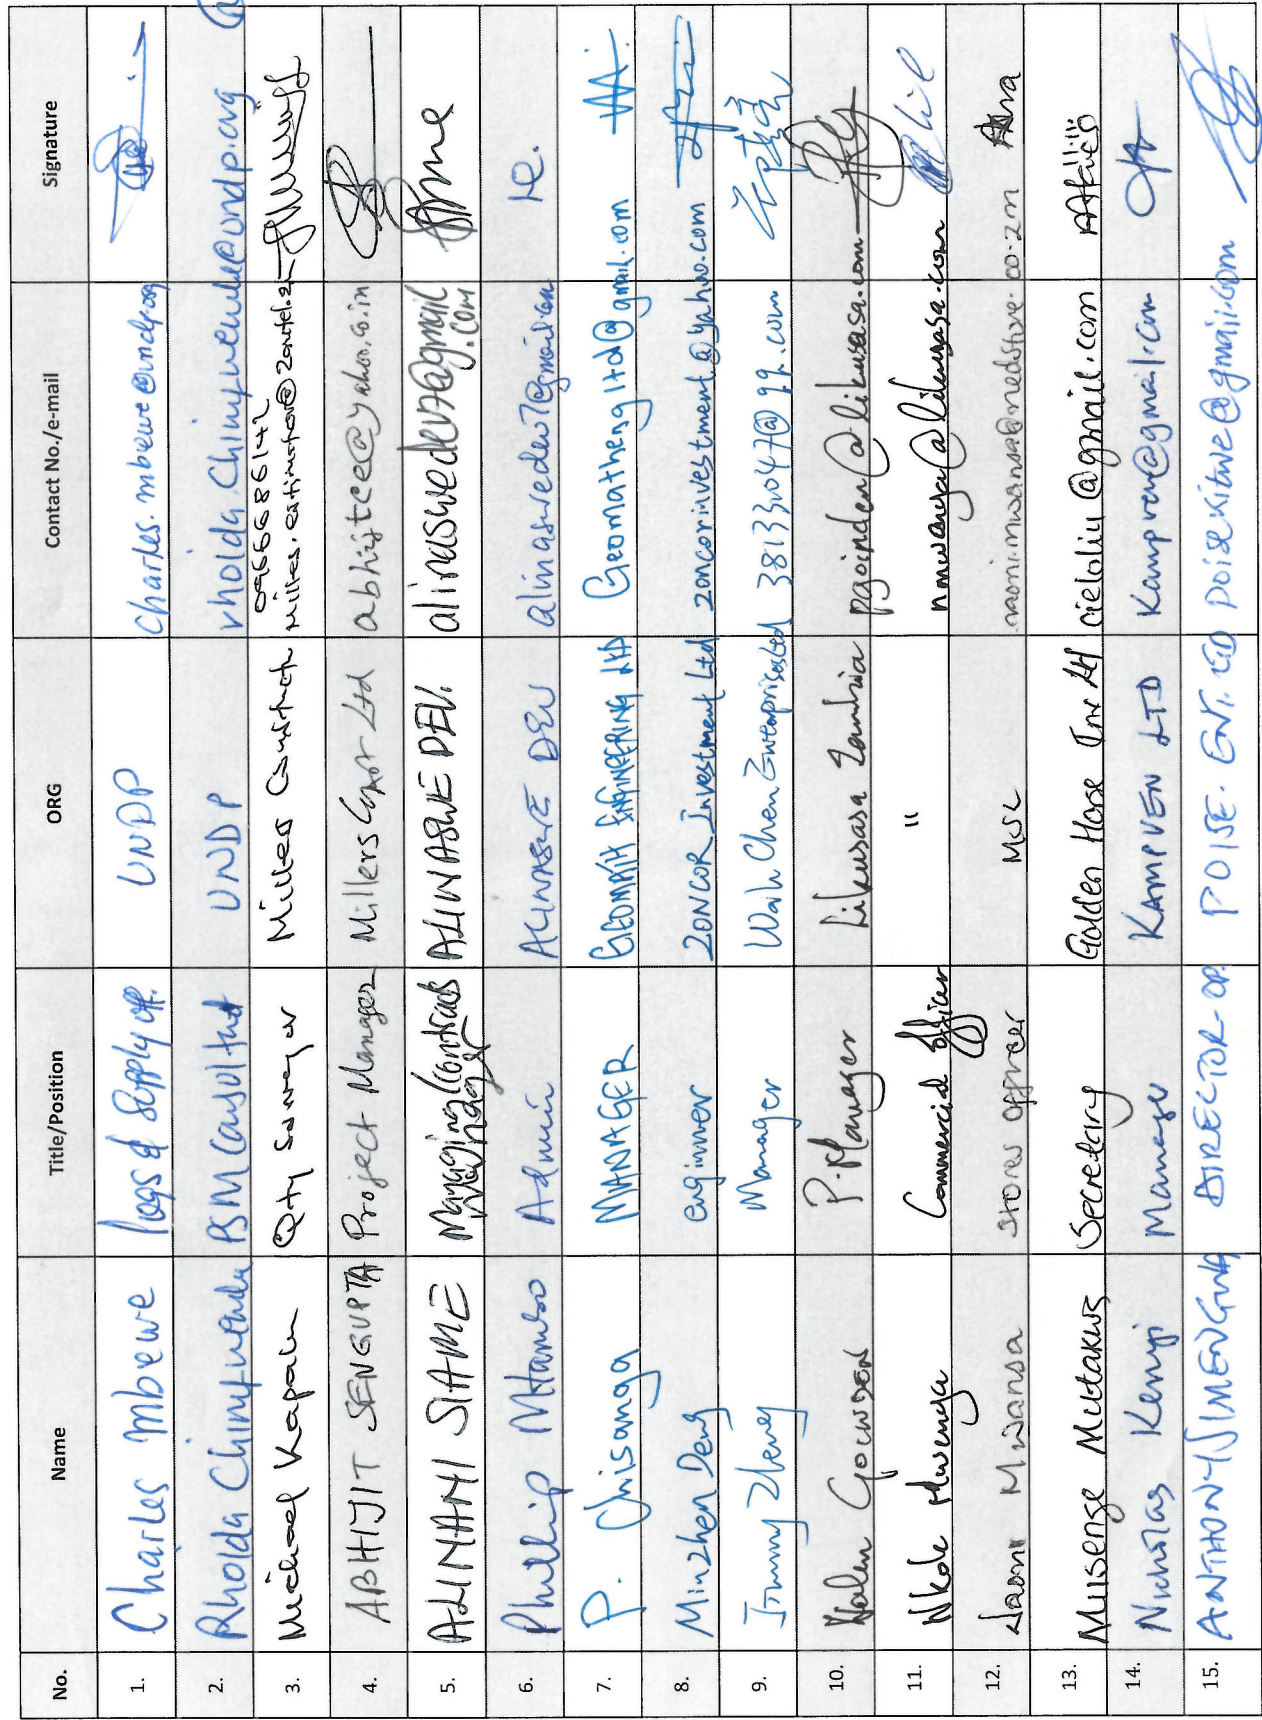 No. Name Title/Position ORG Contact No./e-mail Signature
1. Charles Mbewe Logs & Supply off. UNDP charles.mbewe@undp.org
2. Rholda Chinyuenda PSM Consultant UNDP rholda.chinyuenda@undp.org
3. Michael Kapalu Qty Surveyor Millers 0966686142
4. ABHIJIT SENGUPTA Project Manager Millers Ltd abhijtce@yahoo.co.in
5. ALINANI SIAME Managing/Contracts Manager ALINASWE DEV. alinaswedev7@gmail
.com
6. Phillip Mtambo Admin ALINASWE DEV alinaswedev7@gmail.com
7. P. Chisanga MANAGER GEOMATH ENGINEERING LTD Geomathengltd@gmail.com
8. Minzhen Deng enginner ZONCOR Investment Ltd zoncorinvestment@yahoo.com
9. Jimmy Zheng Manager Wah Chen Enterprises Ltd 38133047@qq.com
10. P. Manager Likusasa Zambia pgoinden@likusasa.com
11. Nkole Mwenya Commercial Officer "
12. Naomi Mwansa Stores Officer MSL naomi.mwansa@medstore.co.zm
13. Musenge Mutakwa Secretary Golden Horse Inv Ltd cieloliu@gmail.com
14. Nicholas Kenyi Manager KAMPVEN LTD Kampven@gmail.com
15. ANTHONY SIMENGWA DIRECTOR-OP. POISE. ENT. LTD poisekitwe@gmail.com